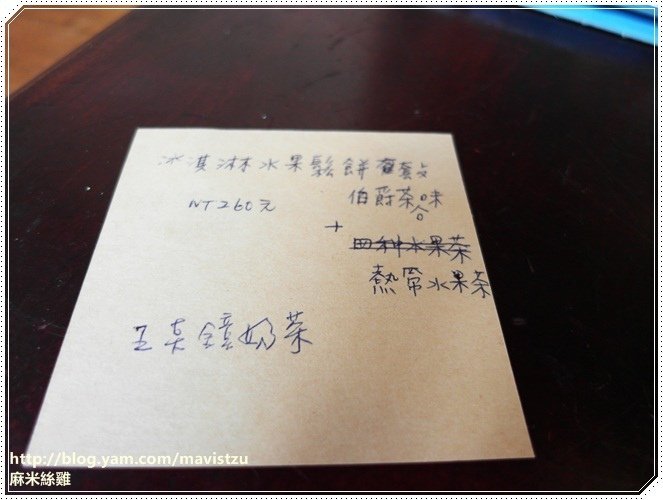 冰淇淋水果鬆餅套
伯爵茶味
NT260元
合
+
四种水果茶
熱帶水果茶
奶茶
http://blog.yam.com/mavistzu
麻米絲雞